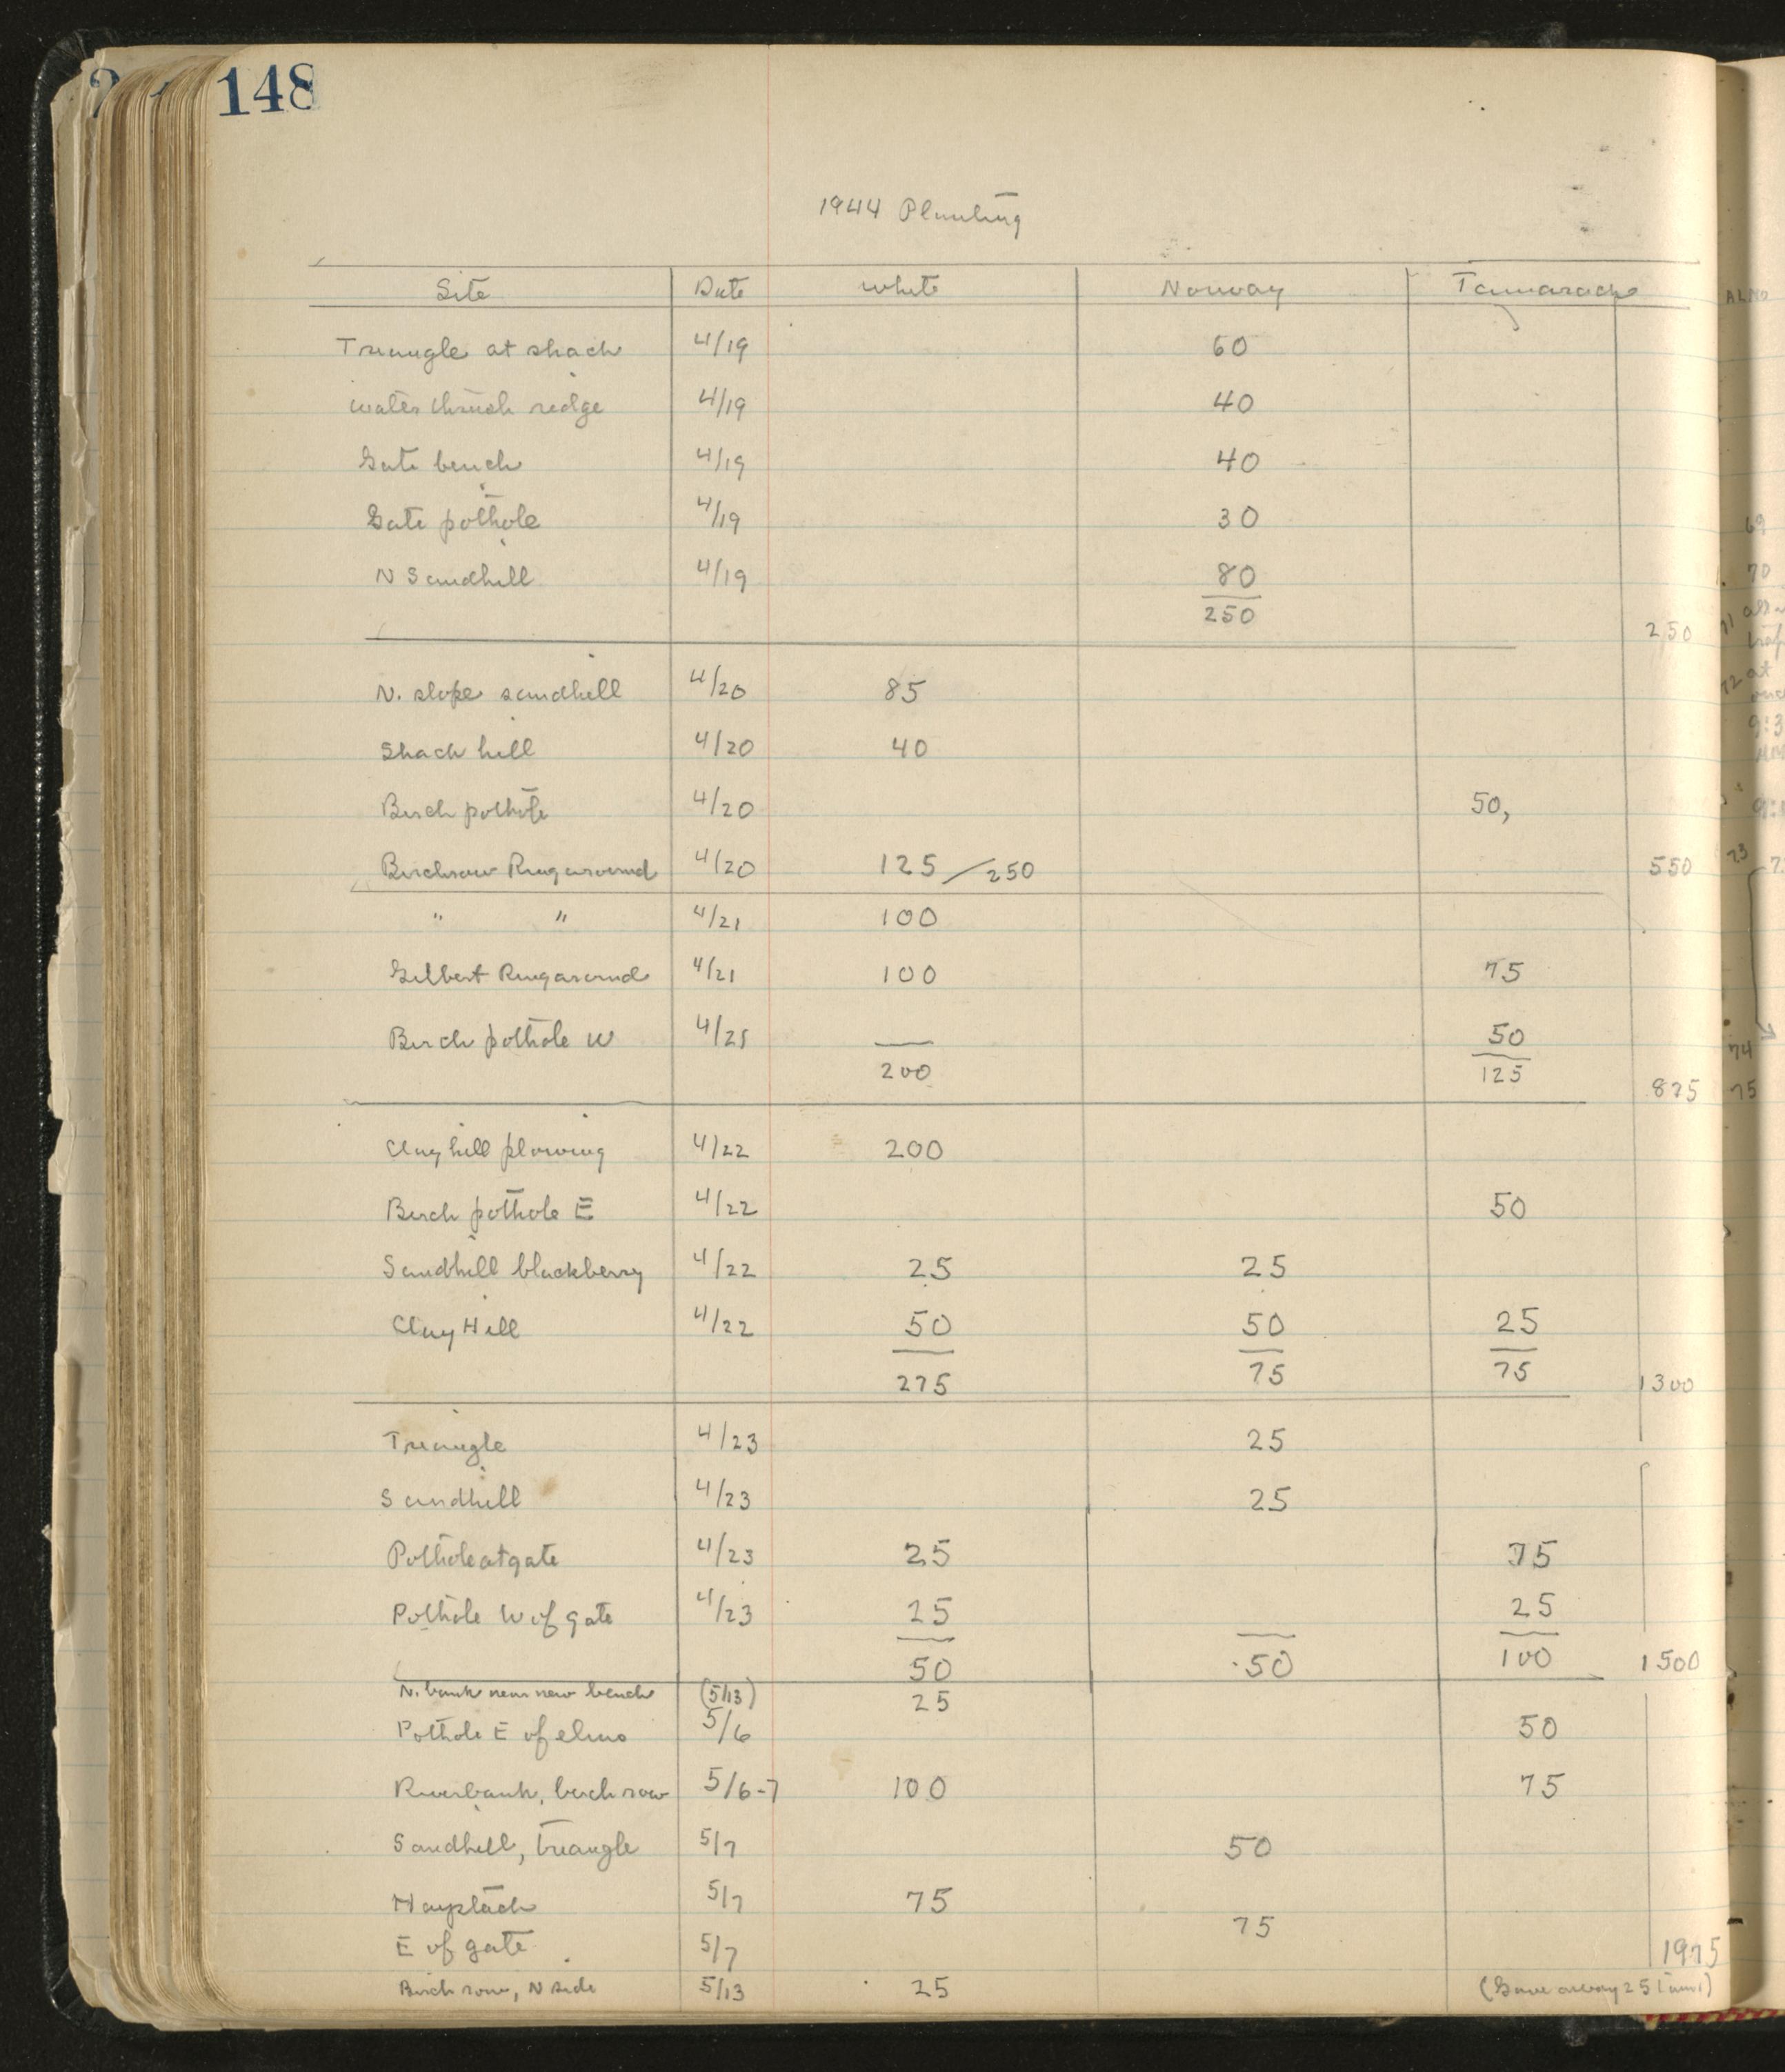 148
1944 Planting
Site Date White Norway Tamarack
Triangle at shack 4/19 60
Water thrush ridge 4/19 40
Gate bench 4/19 40
Gate pothole 4/19 30
N Sandhill 4/19 80
250
250
N. slope sandhill 4/20 85
Shack hill 4/20 40
Birch pothole 4/20 50,
Birchrow Ringaround 4/20 125 / 250 550
" " 4/21 100
Gilbert Ringaround 4/21 100 75
Birch pothole W 4/21 50
200 125
875
Clay hill plowing 4/22 200
Birch pothole E 4/22 50
Sandhill blackberry 4/22 25 25
Clay Hill 4/22 50 50 25
275 75 75 1300
Triangle 4/23 25
Sandhill 4/23 25
Pothole at gate 4/23 25 75
Pothole W of gate 4/23 25 25
50 50 100 1500
N. bank near new bench (5/13) 25
Pothole E of elms 5/6 50
Riverbank, birch row 5/6-7 100 75
Sandhill, triangle 5/7 50
Haystack 5/7 75
E of gate 5/7 75 1975
Birch row, N side 5/13 25 (Gave away 25 Tam)